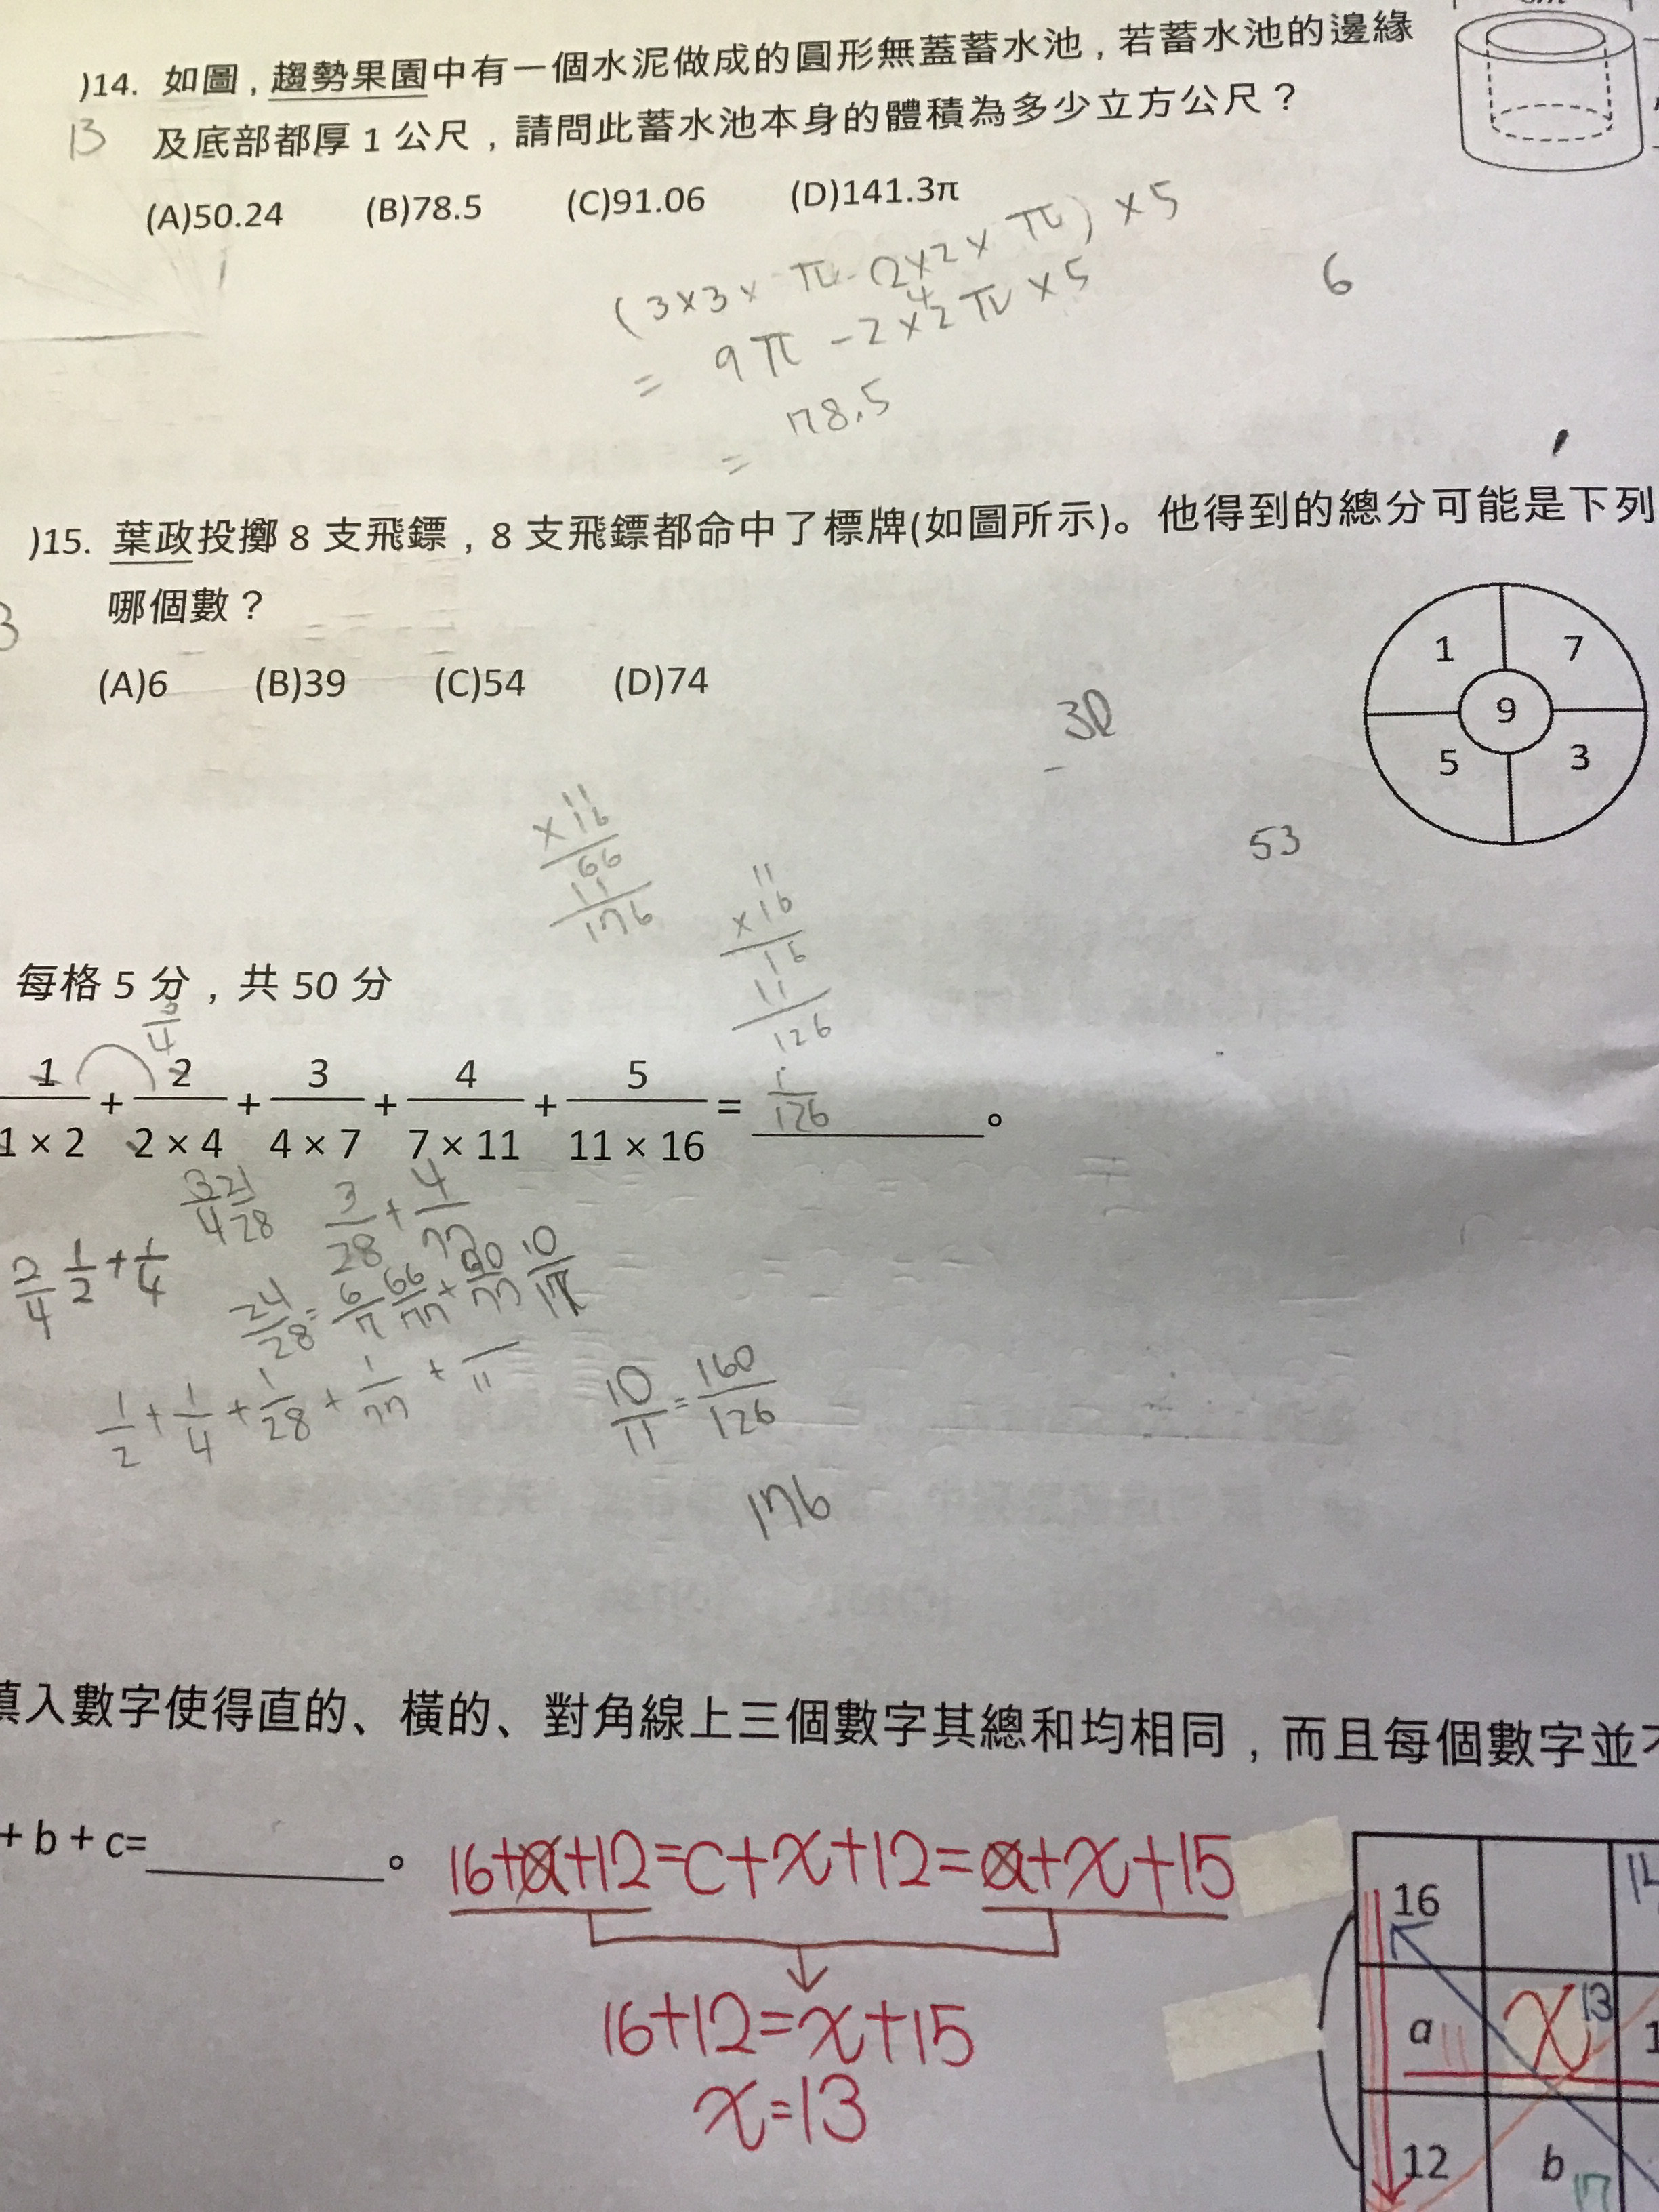 )14. 如圖，趨勢果園中有一個水泥做成的圓形無蓋蓄水池，若蓄水池的邊緣
13 及底部都厚 1 公尺，請問此蓄水池本身的體積為多少立方公尺？
(A)50.24 (B)78.5 (C)91.06 (D)141.3π
(3×3×π-2×2×π)×5
= 9π-2×2π×5
4
= 78.5
6
)15. 葉政投擲 8 支飛鏢，8 支飛鏢都命中了標牌(如圖所示)。他得到的總分可能是下列
哪個數？
(A)6 (B)39 (C)54 (D)74
1 7
9
5 3
53
11
×16
66
11
176
11
×16
16
11
126
每格 5 分，共 50 分
3/4
1/1×2 + 2/2×4 + 3/4×7 + 4/7×11 + 5/11×16 = 1/126 。
3/4 21/28 3/28 + 4/77
2/4 1/2 + 1/4
24/28 = 6/7 66/77 +
1/2 + 1/4 + 1/28 + 1/77 + /11
10/11 = 160/126
176
填入數字使得直的、橫的、對角線上三個數字其總和均相同，而且每個數字並
+ b + c= 。
16+a+12=c+x+12=a+x+15
16+12=x+15
x=13
16 14
a 11 x 13 1
12 b 17